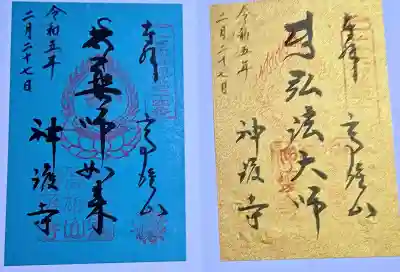 奉拝
高雄山
薬師如来
神護寺
令和五年
二月二十七日
奉拝
高雄山
弘法大師
神護寺
令和五年
二月二十七日